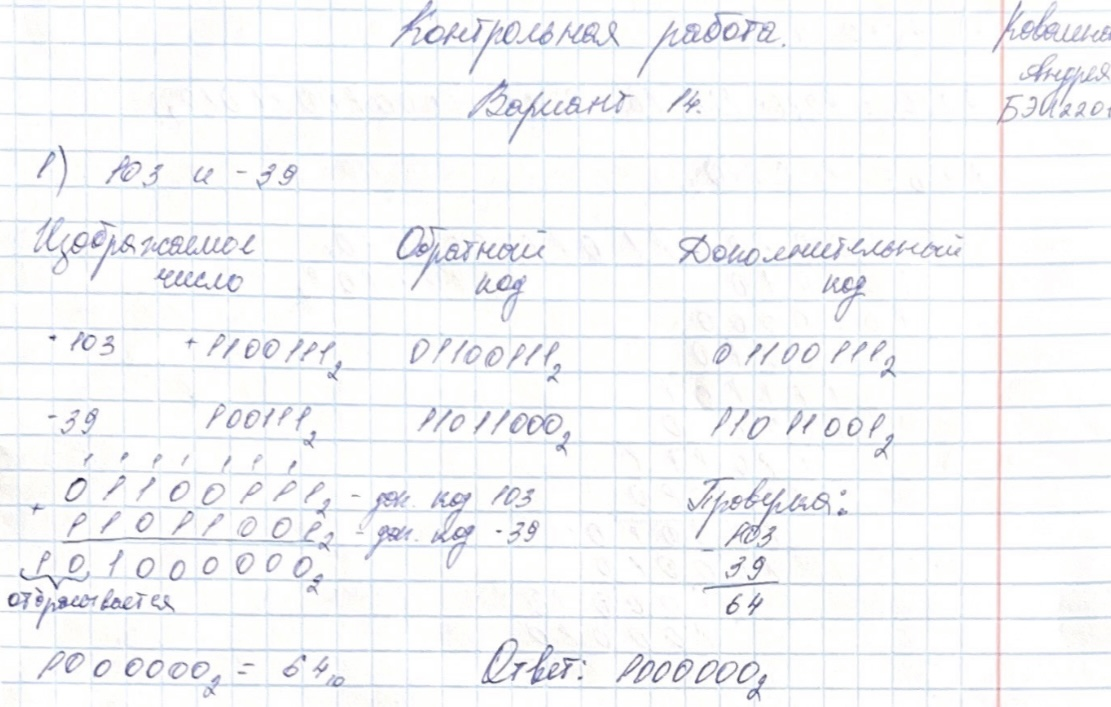 Контрольная работа.
Вариант 14.
Андрея
1) 103 и -39
Изображаемое число
Обратный код
Дополнительный код
+103 +1100111₂ 01100111₂ 01100111₂
-39 100111₂ 11011000₂ 11011001₂
1 1 1 1 1 1 1
01100111₂ - доп. код 103
+ 11011001₂ - доп. код -39
101000000₂
отбрасывается
Проверка:
103
- 39
64
1000000₂ = 64₁₀
Ответ: 1000000₂